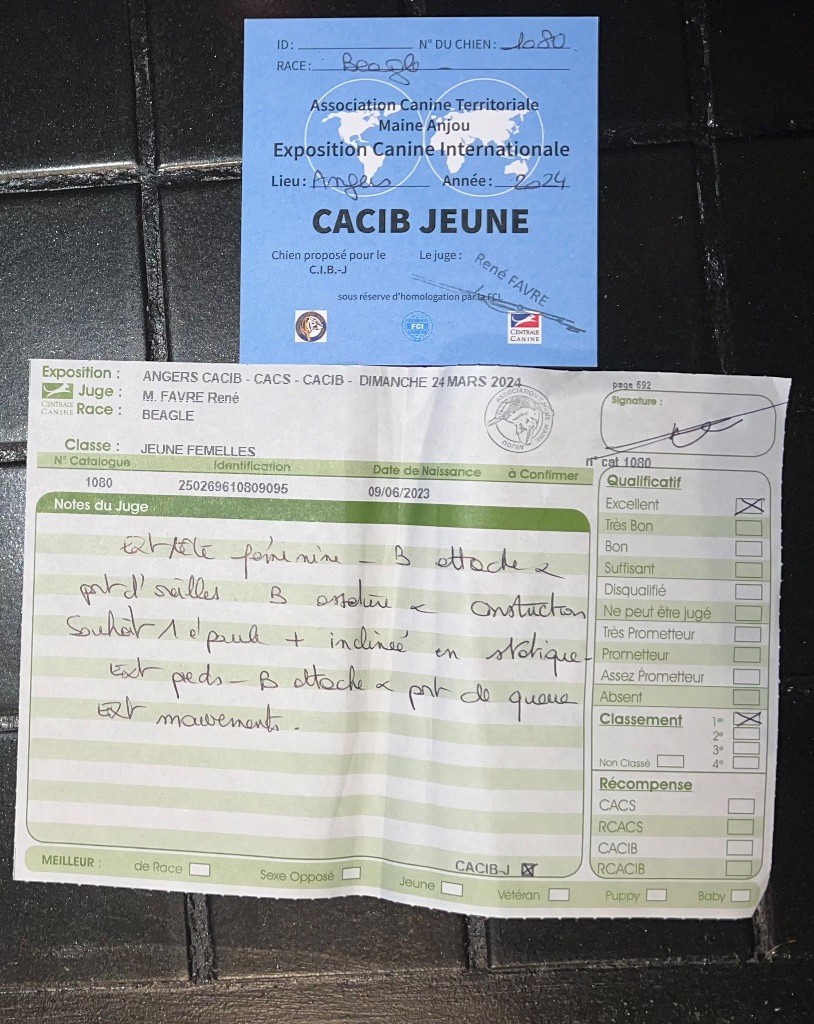 ID: N° DU CHIEN: 1080
RACE: Beagle
Association Canine Territoriale
Maine Anjou
Exposition Canine Internationale
Lieu: Angers Année: 2024
CACIB JEUNE
Chien proposé pour le
C.I.B.-J
Le juge :
René FAVRE
sous réserve d'homologation par la FCI.
FCI
CENTRALE
CANINE
Exposition : ANGERS CACIB - CACS - CACIB - DIMANCHE 24 MARS 2024
CENTRALE
CANINE
Juge : M. FAVRE René
Race : BEAGLE
Classe : JEUNE FEMELLES
page 692
Signature :
n° cat 1080
N° Catalogue Identification Date de Naissance à Confirmer
1080 250269610809095 09/06/2023
Notes du Juge
Ext tête féminine - B attache &
prt d'oreilles. B ossature & Construction
Souhait 1 épaule + inclineé en statique -
Ext pieds - B attache & prt de queue
Ext mouvements.
Qualificatif
Excellent
Très Bon
Bon
Suffisant
Disqualifié
Ne peut être jugé
Très Prometteur
Prometteur
Assez Prometteur
Absent
Classement 1er
2e
3e
Non Classé 4e
Récompense
CACS
RCACS
CACIB
RCACIB
CACIB-J
MEILLEUR : de Race Sexe Opposé Jeune Vétéran Puppy Baby